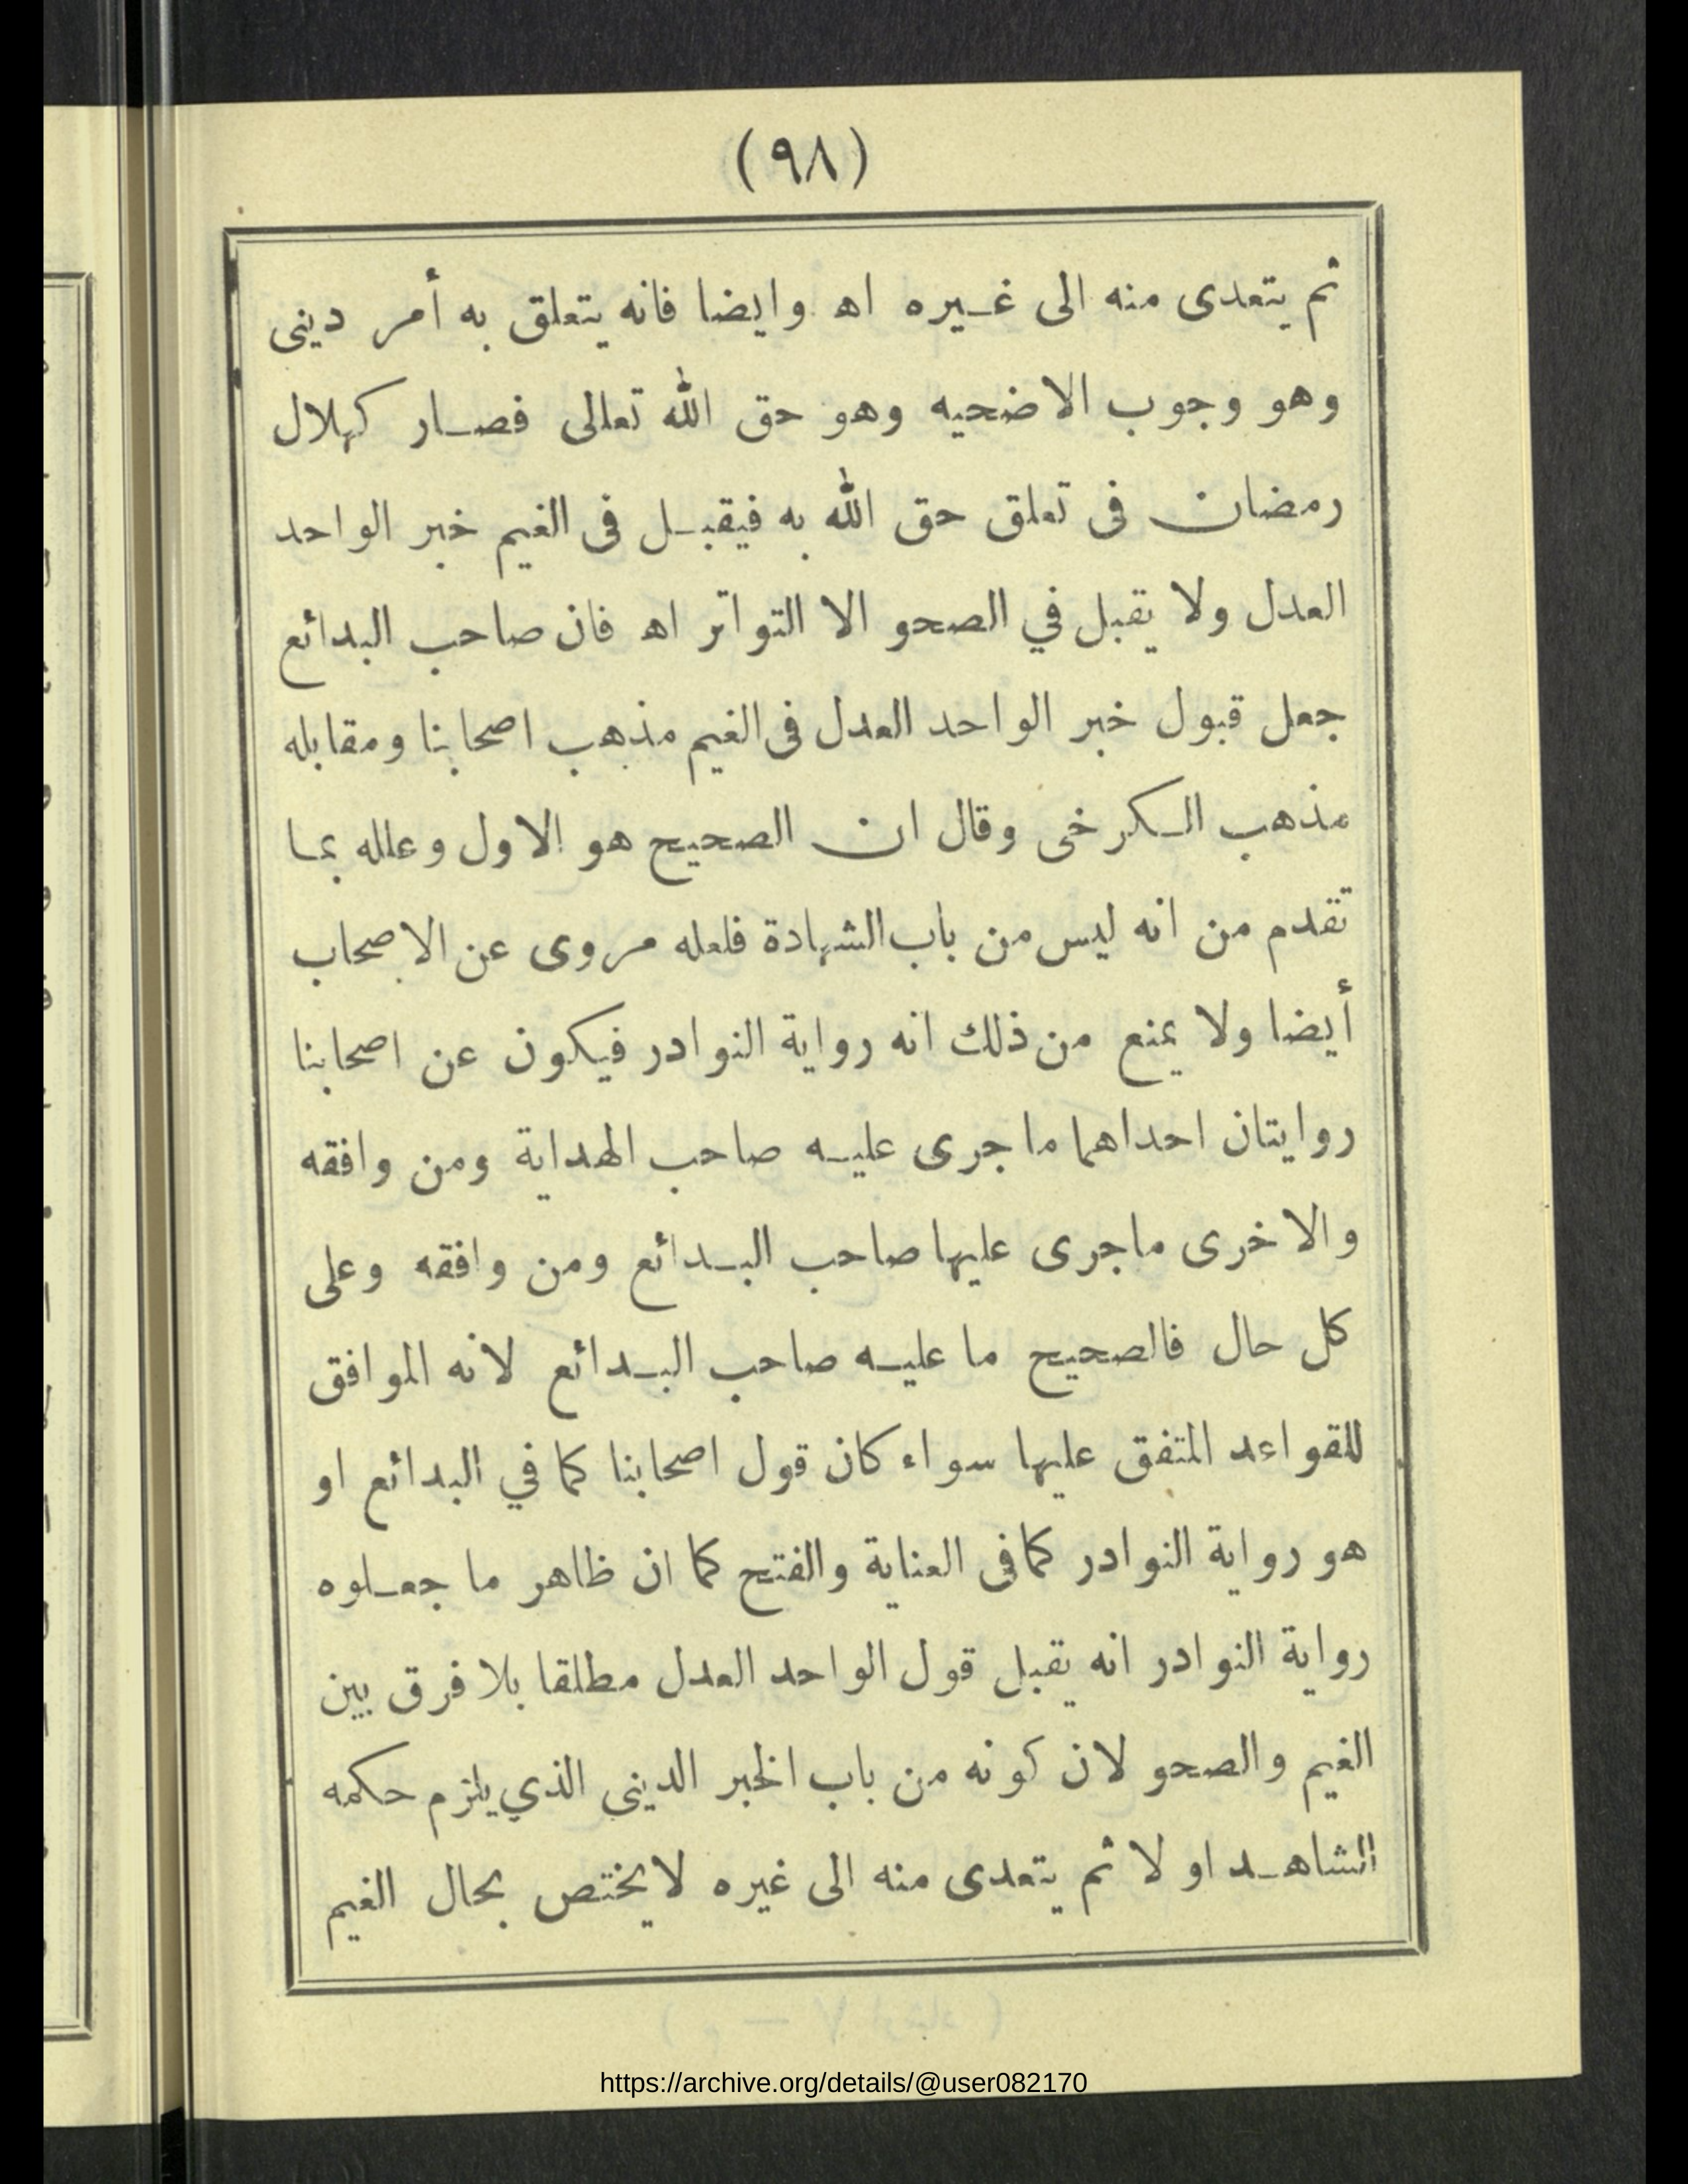 (٩٨)
ثم يتعدى منه الى غيره اه وايضا فانه يتعلق به أمر دينى
وهو وجوب الاضحيه وهو حق الله تعالى فصار كهلال
رمضان فى تعلق حق الله به فيقبل فى الغيم خبر الواحد
العدل ولا يقبل في الصحو الا التواتر اه فان صاحب البدائع
جعل قبول خبر الواحد العدل فى الغيم مذهب اصحابنا ومقابله
مذهب الكرخى وقال ان الصحيح هو الاول وعلله بما
تقدم من انه ليس من باب الشهادة فلعله مروى عن الاصحاب
أيضا ولا يمنع من ذلك انه رواية النوادر فيكون عن اصحابنا
روايتان احداهما ما جرى عليه صاحب الهداية ومن وافقه
والاخرى ماجرى عليها صاحب البدائع ومن وافقه وعلى
كل حال فالصحيح ما عليه صاحب البدائع لانه الموافق
للقواعد المتفق عليها سواء كان قول اصحابنا كما في البدائع او
هو رواية النوادر كما فى العناية والفتح كما ان ظاهر ما جعلوه
رواية النوادر انه يقبل قول الواحد العدل مطلقا بلا فرق بين
الغيم والصحو لان كونه من باب الخبر الدينى الذي يلزم حكمه
الشاهد او لا ثم يتعدى منه الى غيره لا يختص بحال الغيم
https://archive.org/details/@user082170